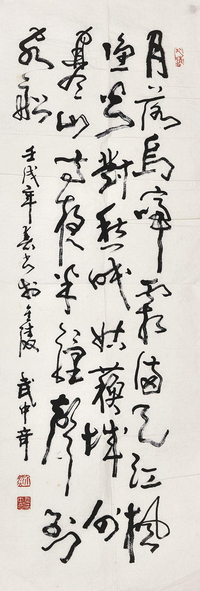 月落乌啼霜满天江枫
渔火对愁眠姑苏城外
寒山寺夜半钟声到
客船
壬戌年春书於金陵 武中奇